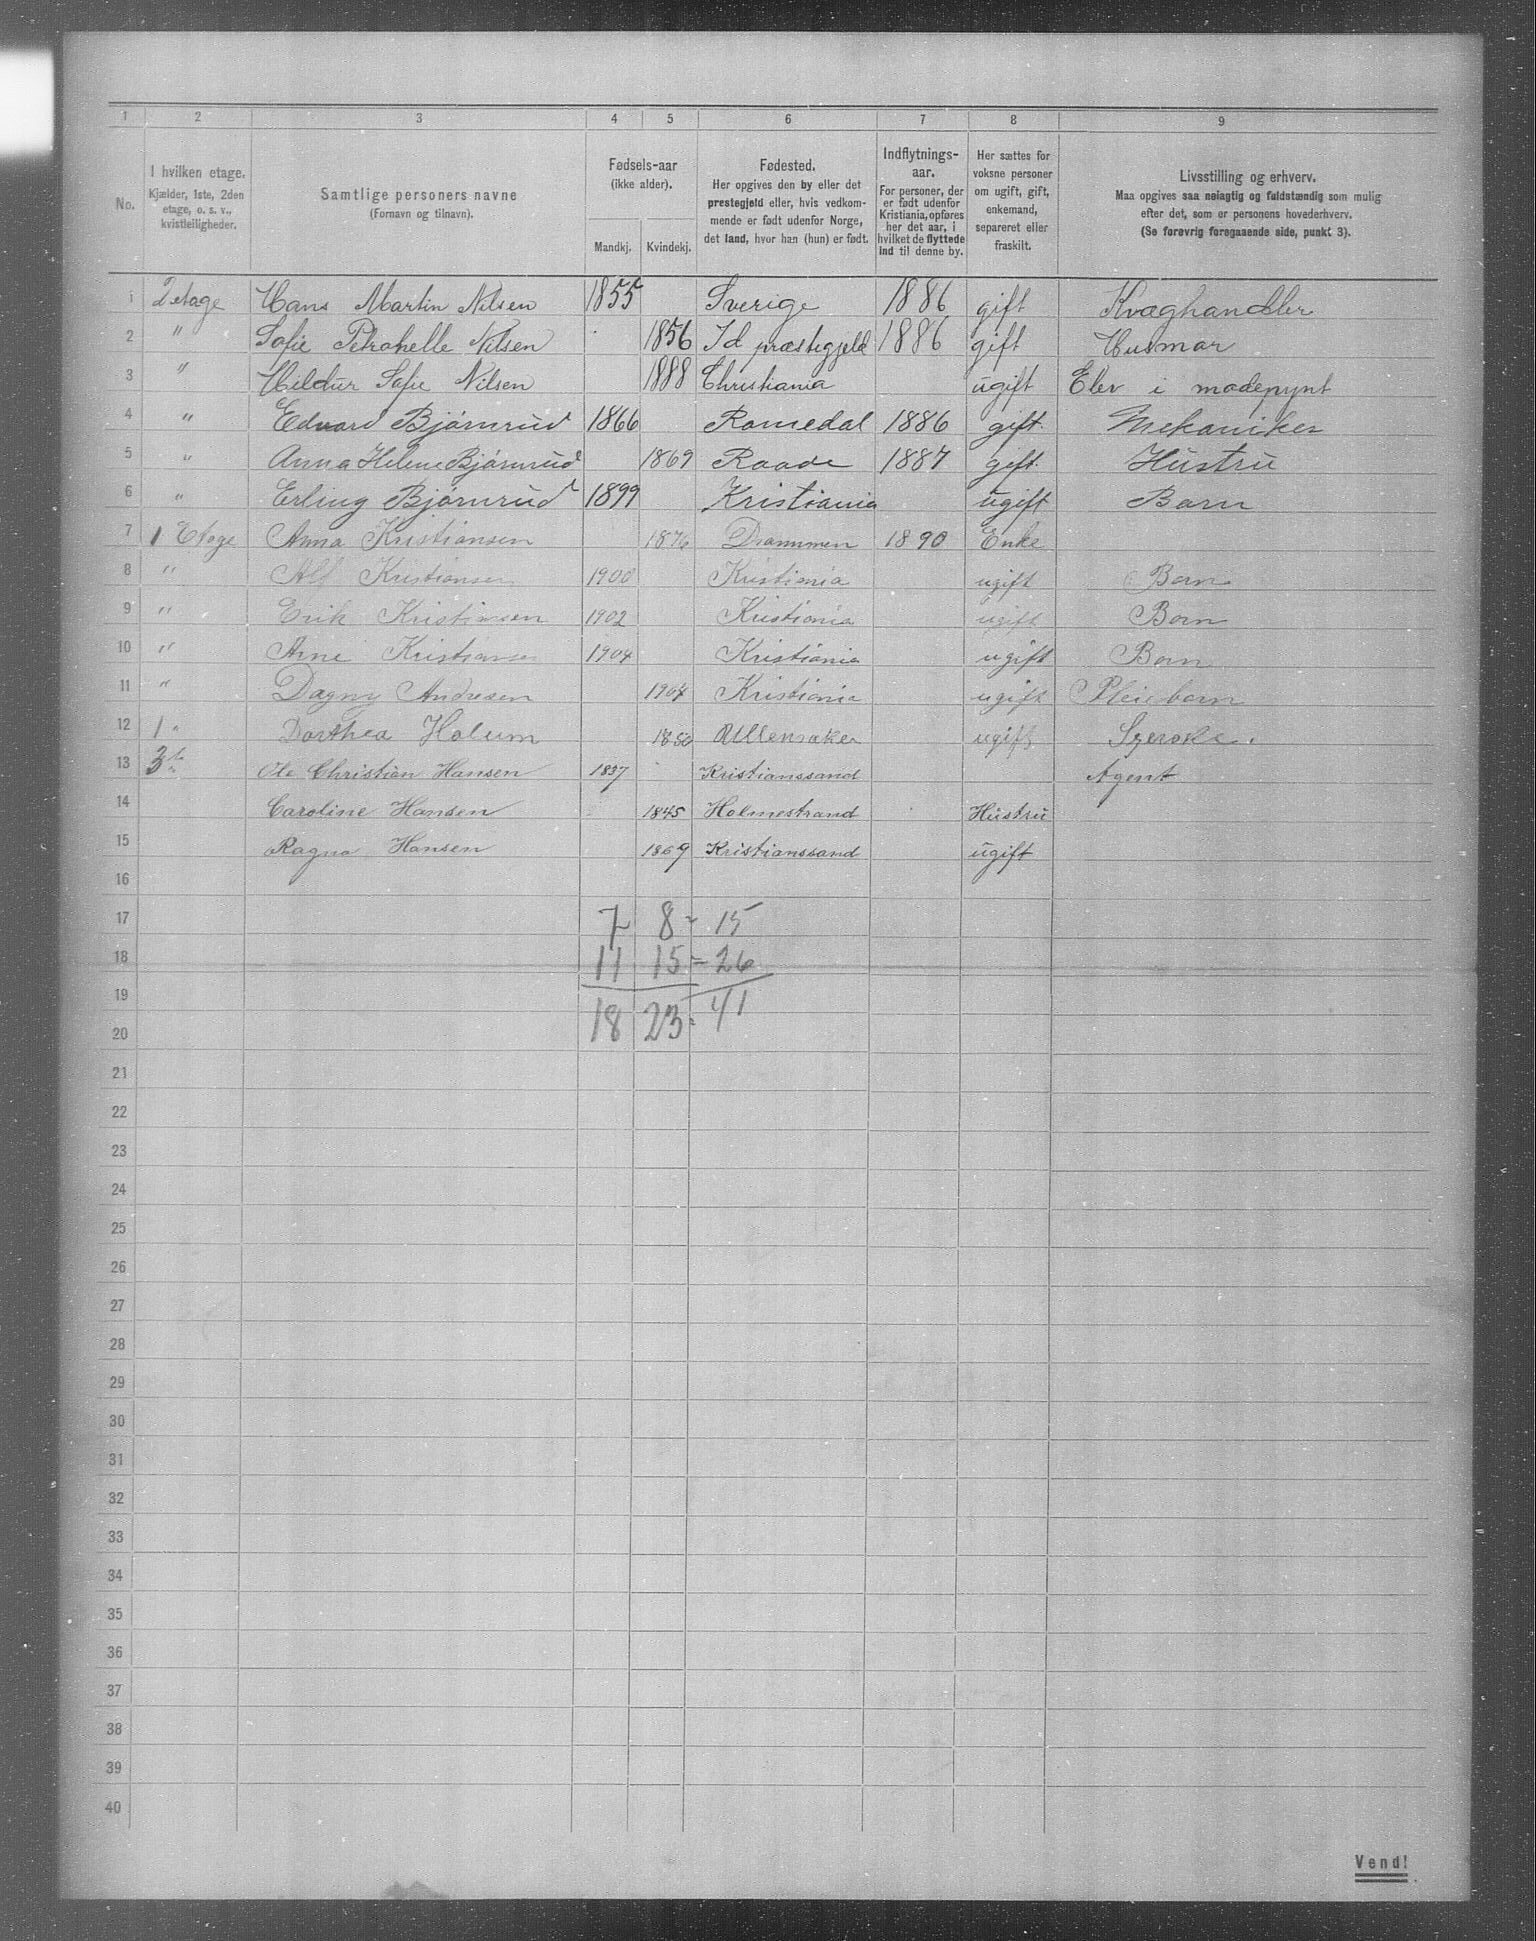 1 2 3 4 5 6 7 8 9
No.
I hvilken etage.
Kjælder, 1ste, 2den
etage, o. s. v.,
kvistleiligheder.
Samtlige personers navne
(Fornavn og tilnavn).
Fødsels-aar
(ikke alder).
Mandkj. Kvindekj.
Fødested.
Her opgives den by eller det
prestegjeld eller, hvis vedkom-
mende er født udenfor Norge,
det land, hvor han (hun) er født.
Indflytnings-
aar.
For personer, der
er født udenfor
Kristiania, opføres
her det aar, i
hvilket de flyttede
ind til denne by.
Her sættes for
voksne personer
om ugift, gift,
enkemand,
separeret eller
fraskilt.
Livsstilling og erhverv.
Maa opgives saa nøiagtig og fuldstændig som mulig
efter det, som er personens hovederhverv.
(Se forøvrig foregaaende side, punkt 3).
1 2 etage Hans Martin Nilsen 1855 Sverige 1886 gift Kvæghandler
2 " Sofie Petronelle Nilsen 1856 Id præstegjeld 1886 gift Husmor
3 " Hildur Sofie Nilsen 1888 Christiania ugift Elev i modepynt
4 " Edvard Bjørnrud 1866 Romedal 1886 gift. Mekaniker
5 " Anna Helene Bjørnrud 1869 Raade 1887 gift. Hustru
6 " Erling Bjørnrud 1899 Kristiania ugift Barn
7 1 Etage Anna Kristiansen 1876 Drammen 1890 Enke
8 " Alf Kristiansen 1900 Kristiania ugift Barn
9 " Erik Kristiansen 1902 Kristiania ugift Barn
10 " Arne Kristiansen 1904 Kristiania ugift Barn
11 " Dagny Andresen 1904 Kristiania ugift Pleiebarn
12 1 " Dorthea Holum 1850 Ullensaker ugift
13 3 Ole Christian Hansen 1837 Kristianssand Agent
14 Caroline Hansen 1845 Holmestrand Hustru
15 Ragna Hansen 1869 Kristianssand ugift
16
17 7 8 = 15
18 11 15 = 26
19
20 18 23 = 41
21
22
23
24
25
26
27
28
29
30
31
32
33
34
35
36
37
38
39
40
Vend!